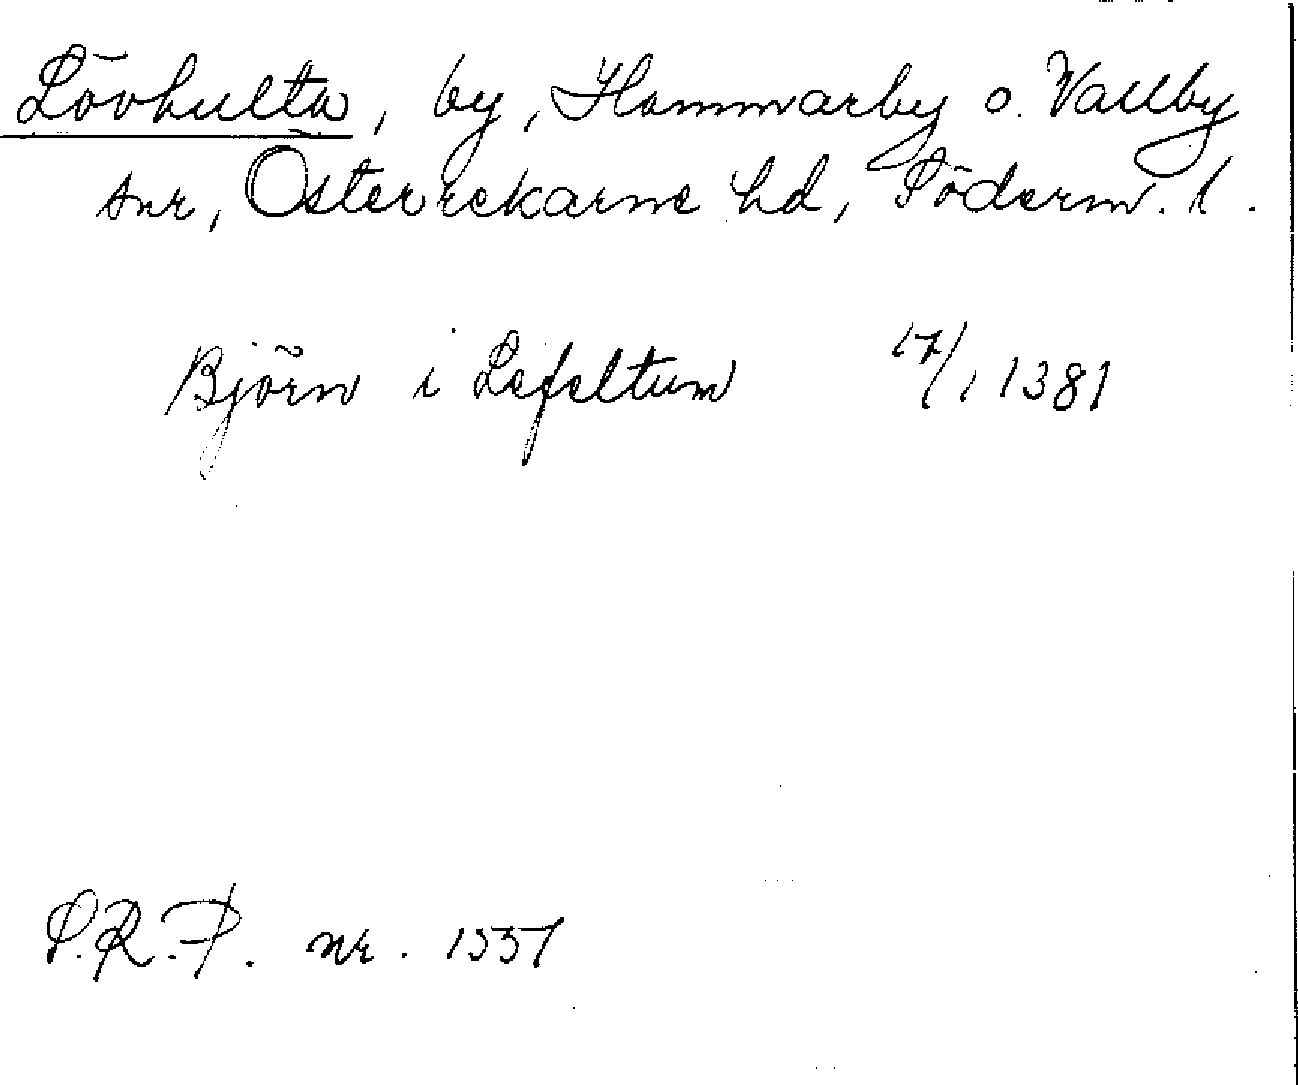 Lövhulta, by, Hammarby o. Vallby
snr, Österrekarne hd, Söderm. l.
Björn i Lefeltum 17/1 1381
S.R.P. nr. 1537